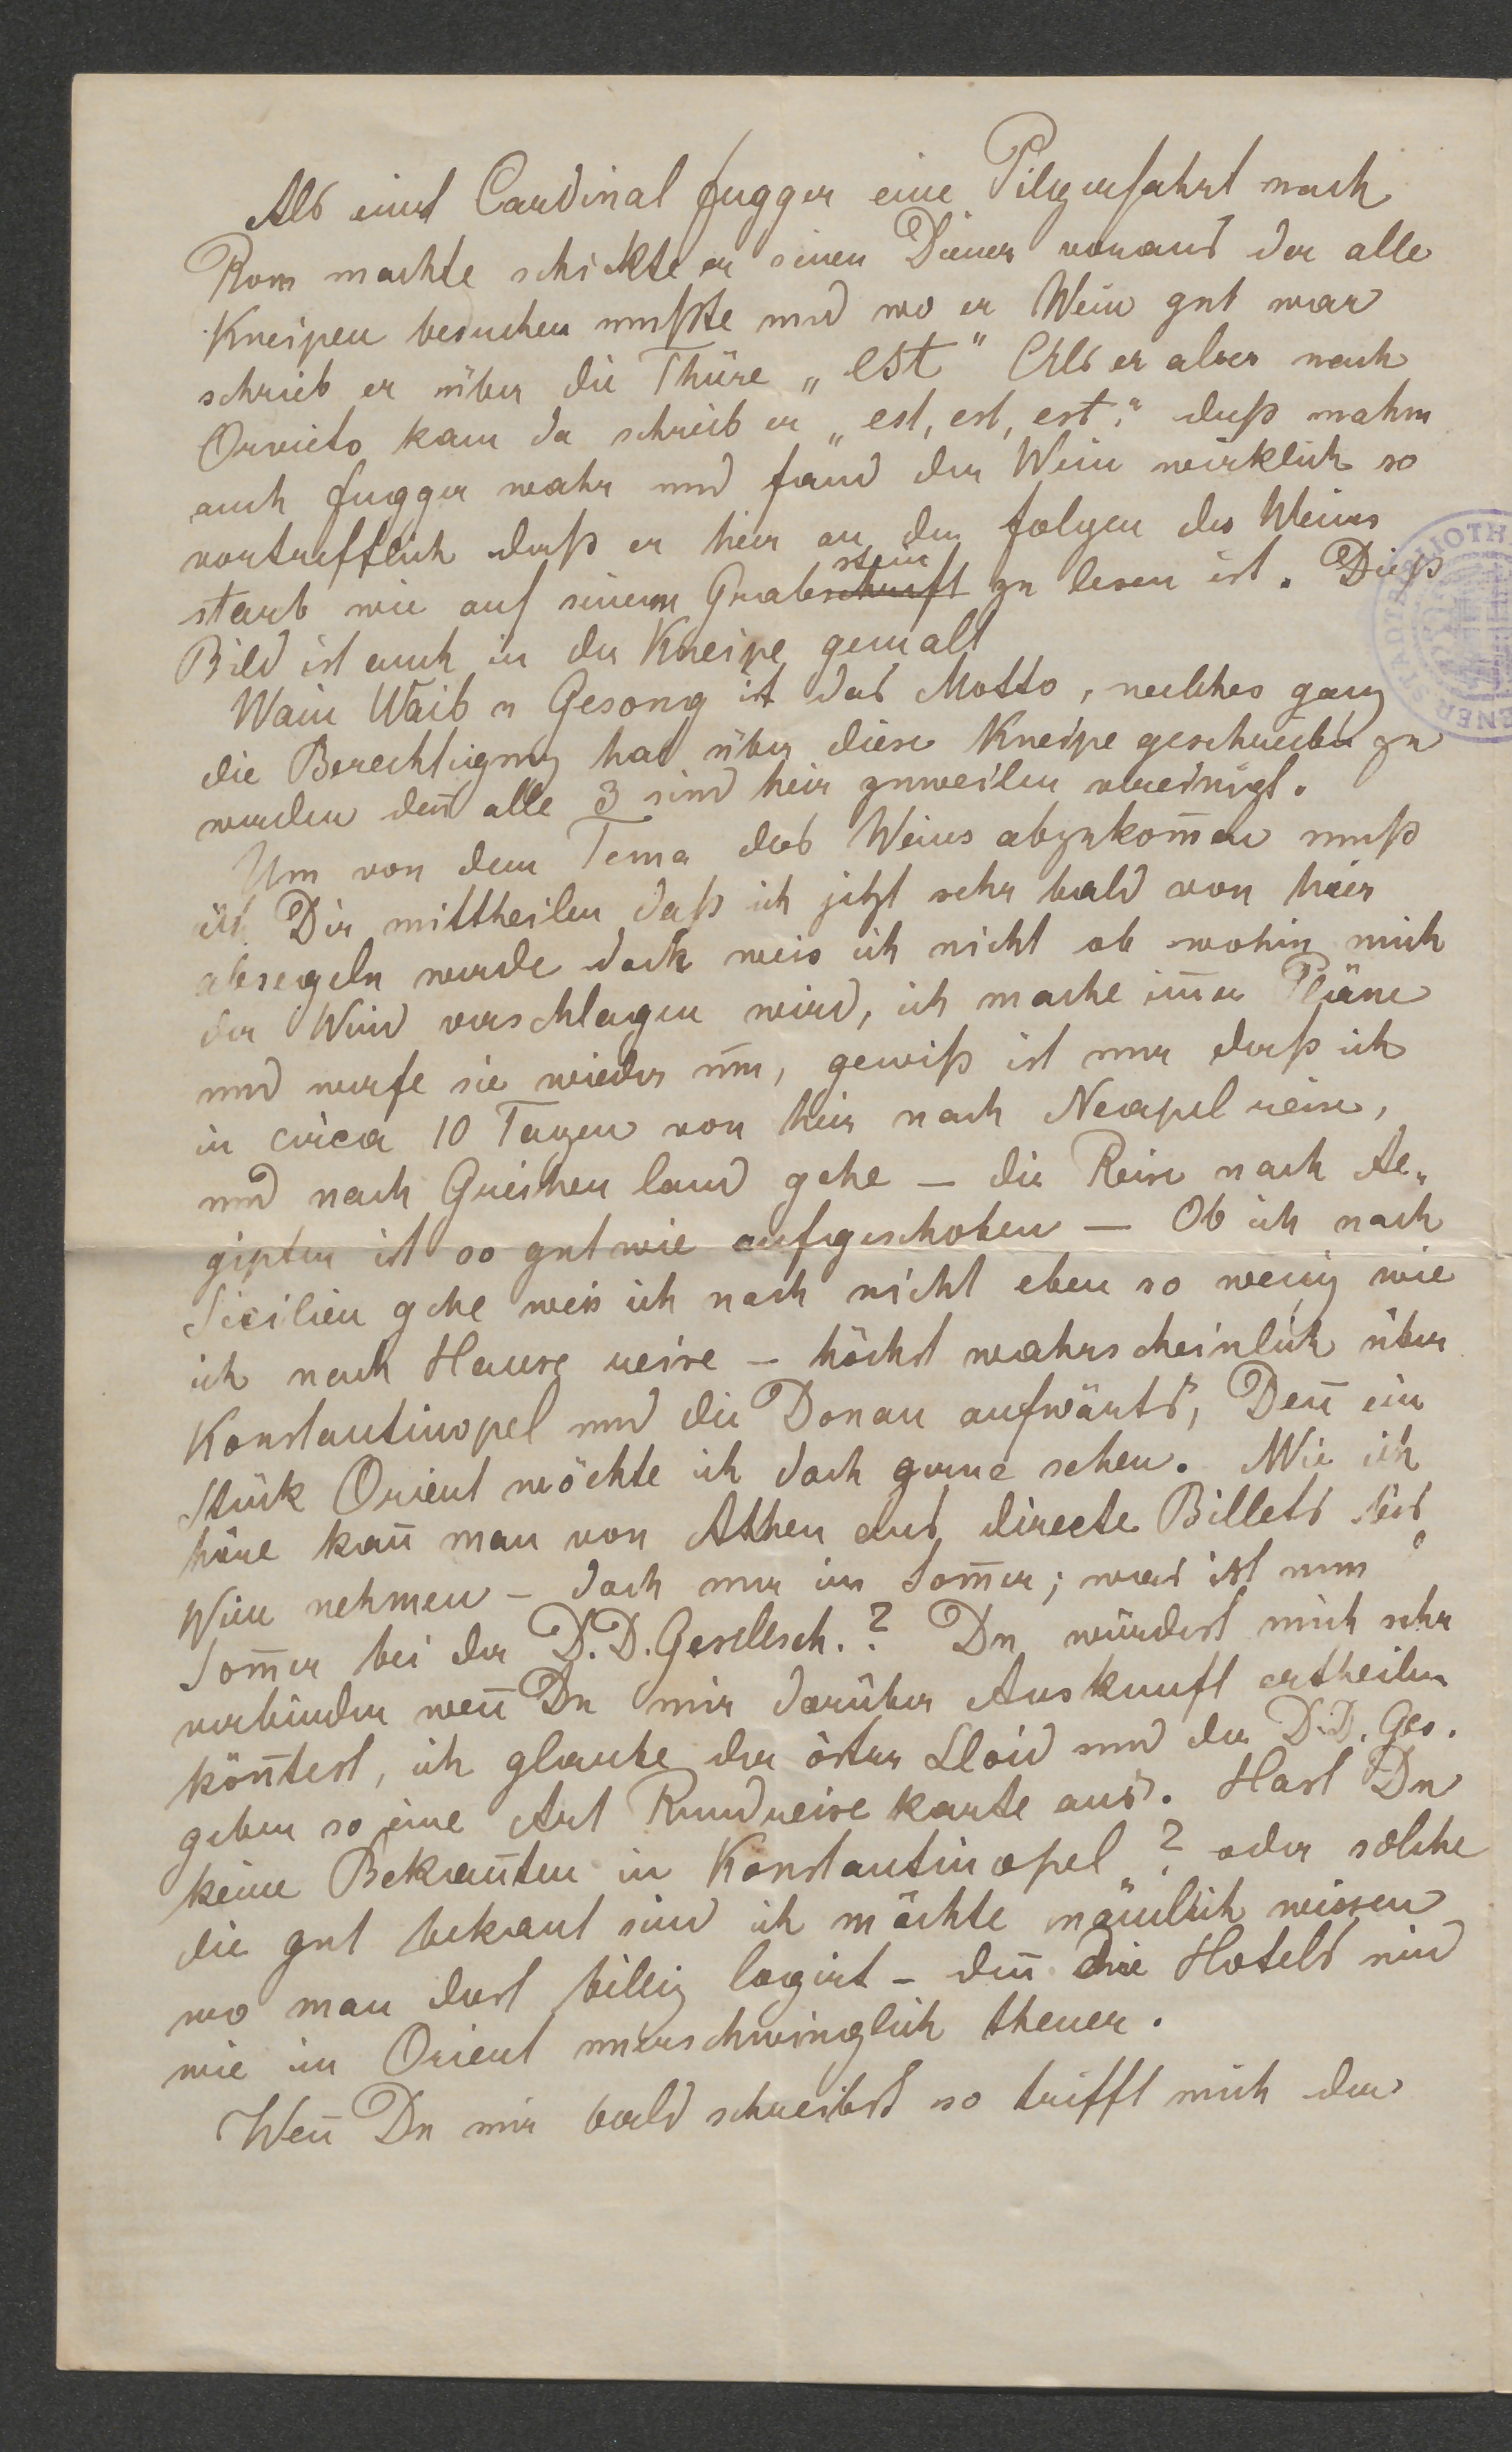 Als einst Cardinal Fugger eine Pilgerfahrt nach
Rom machte schickte er seinen Diener voraus der alle
Kneipen besuchen mußte und wo er Wein gut war
schrieb er über die Thüre „est" Als er aber nach
Orvieto kam da schrieb er „est, est, est." dieß nahm
auch Fugger wahr und fand den Wein wirklich so
vortrefflich daß er hier an den Folgen des Weines
starb wie auf seinem Grabschrift zu lesen ist. Dieß
stein
Bild ist auch in der Kneipe gemalt
Wain Waib u Gesong ist das Motto, welches ganz
die Berechtigung hat über diese Kneipe geschrieben zu
werden den̄ alle 3 sind hier zuweilen vereinigt.
Um von dem Tema des Weines abzukom̄en muß
ich Dir mittheilen daß ich jetzt sehr bald von hier
absegeln werde doch weis ich nicht ob wohin mich
der Wind verschlagen wird, ich mache im̄er Pläne
und werfe sie wieder um, gewiß ist nur daß ich
in circa 10 Tagen von hier nach Neapel reise,
und nach Griechenland gehe — die Reise nach Ae„
gipten ist so gut wie aufgeschoben — Ob ich nach
Sicilien gehe weis ich noch nicht eben so wenig wie
ich nach Hause reise — höchst wahrscheinlich über
Konstantinopel und die Donau aufwärts, Den̄ ein
Stück Orient möchte ich doch gerne sehen. Wie ich
höre kan̄ man von Athen aus directe Billets bis
Wien nehmen — doch nur im Som̄er; was ist nun
Som̄er bei der D.D. Gesellsch.? Du würdest mich sehr
verbinden wen̄ Du mir darüber Auskunft ertheilen
kön̄test, ich glaube der öster Lloid und die D.D. Ges.
geben so eine Art Rundreisekarte aus. Hast Du
keine Bekan̄ten in Konstantinopel? oder solche
die gut bekant sind ich möchte nämlich wissen
wo man dort billig logirt — den̄ die Hotels sind
wie im Orient unerschwinglich theuer.
Wen̄ Du mir bald schreibst so trifft mich der